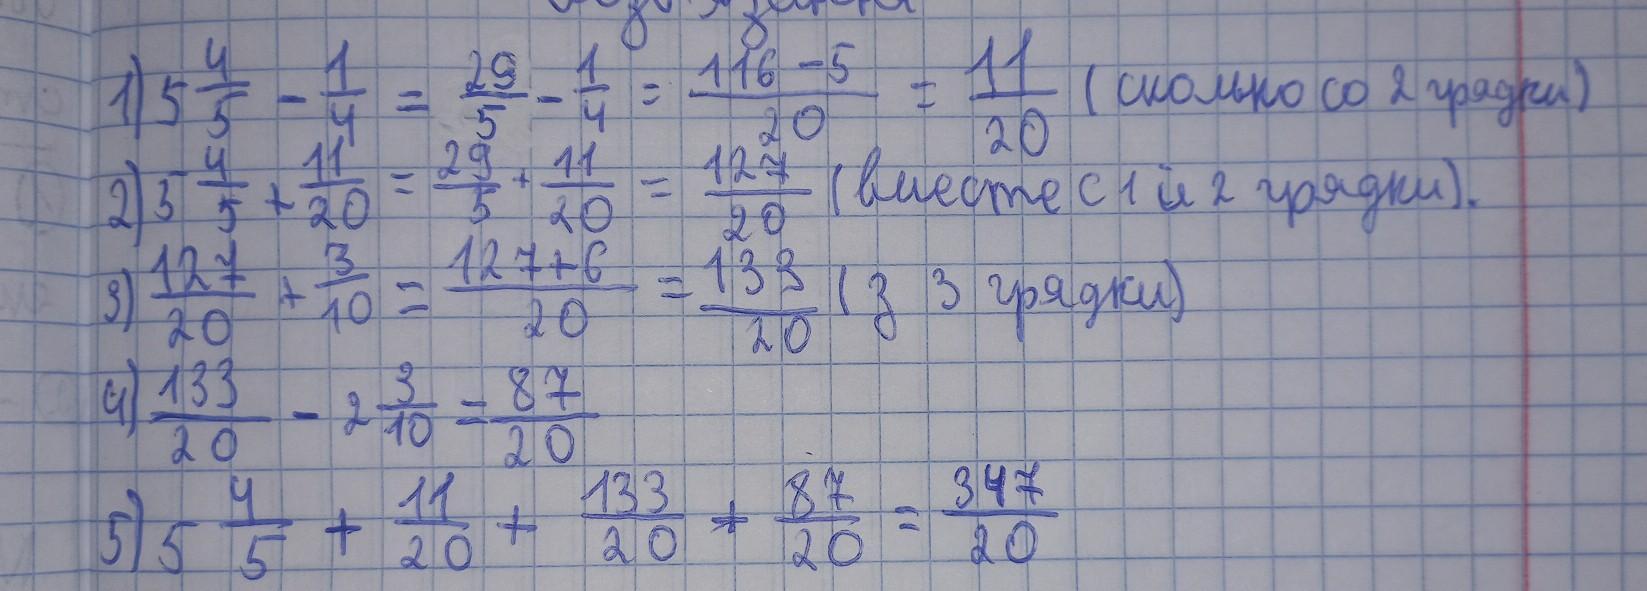 1) 5 4/5 - 1/4 = 29/5 - 1/4 = 116-5/20 = 11/20 (сколько со 2 грядки)
2) 5 4/5 + 11/20 = 29/5 + 11/20 = 127/20 (вместе с 1 и 2 грядки).
3) 127/20 + 3/10 = 127+6/20 = 133/20 (з 3 грядки)
4) 133/20 - 2 3/10 = 87/20
5) 5 4/5 + 11/20 + 133/20 + 87/20 = 347/20